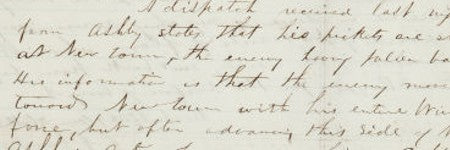 A dispatch received last
from Ashby states that his pickets are
at New town, the enemy having fallen
His information is that the enemy
toward New town with his entire
force, but after advancing this side of